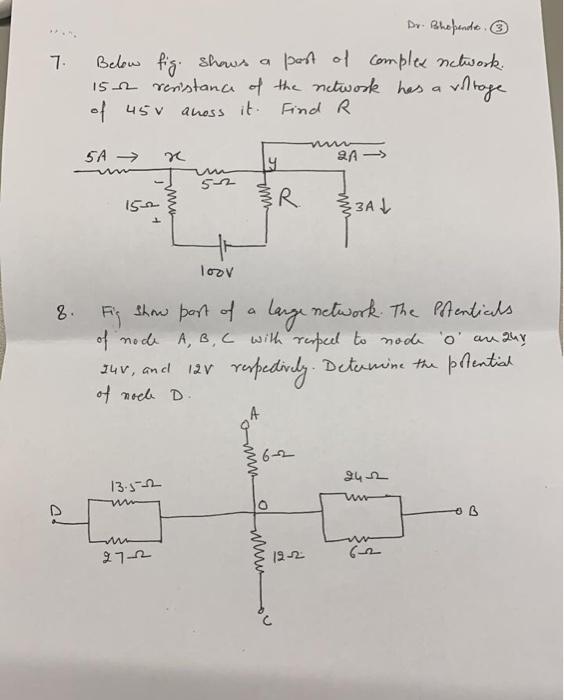 Dr. Bhopendr. ③
7. Below fig. shows a part of complex network.
15Ω resistance of the network has a voltage
of 45V across it. Find R
5A → x
y
2A →
5Ω
15Ω
-
+
R
3A ↓
100V
8. Fig show part of a large network. The Potentials
of node A, B, C with respect to node 'O' are 24V
24V, and 12V respectively. Determine the potential
of node D.
A
6Ω
13.5Ω
24Ω
D
O
B
27Ω
12Ω
6Ω
C